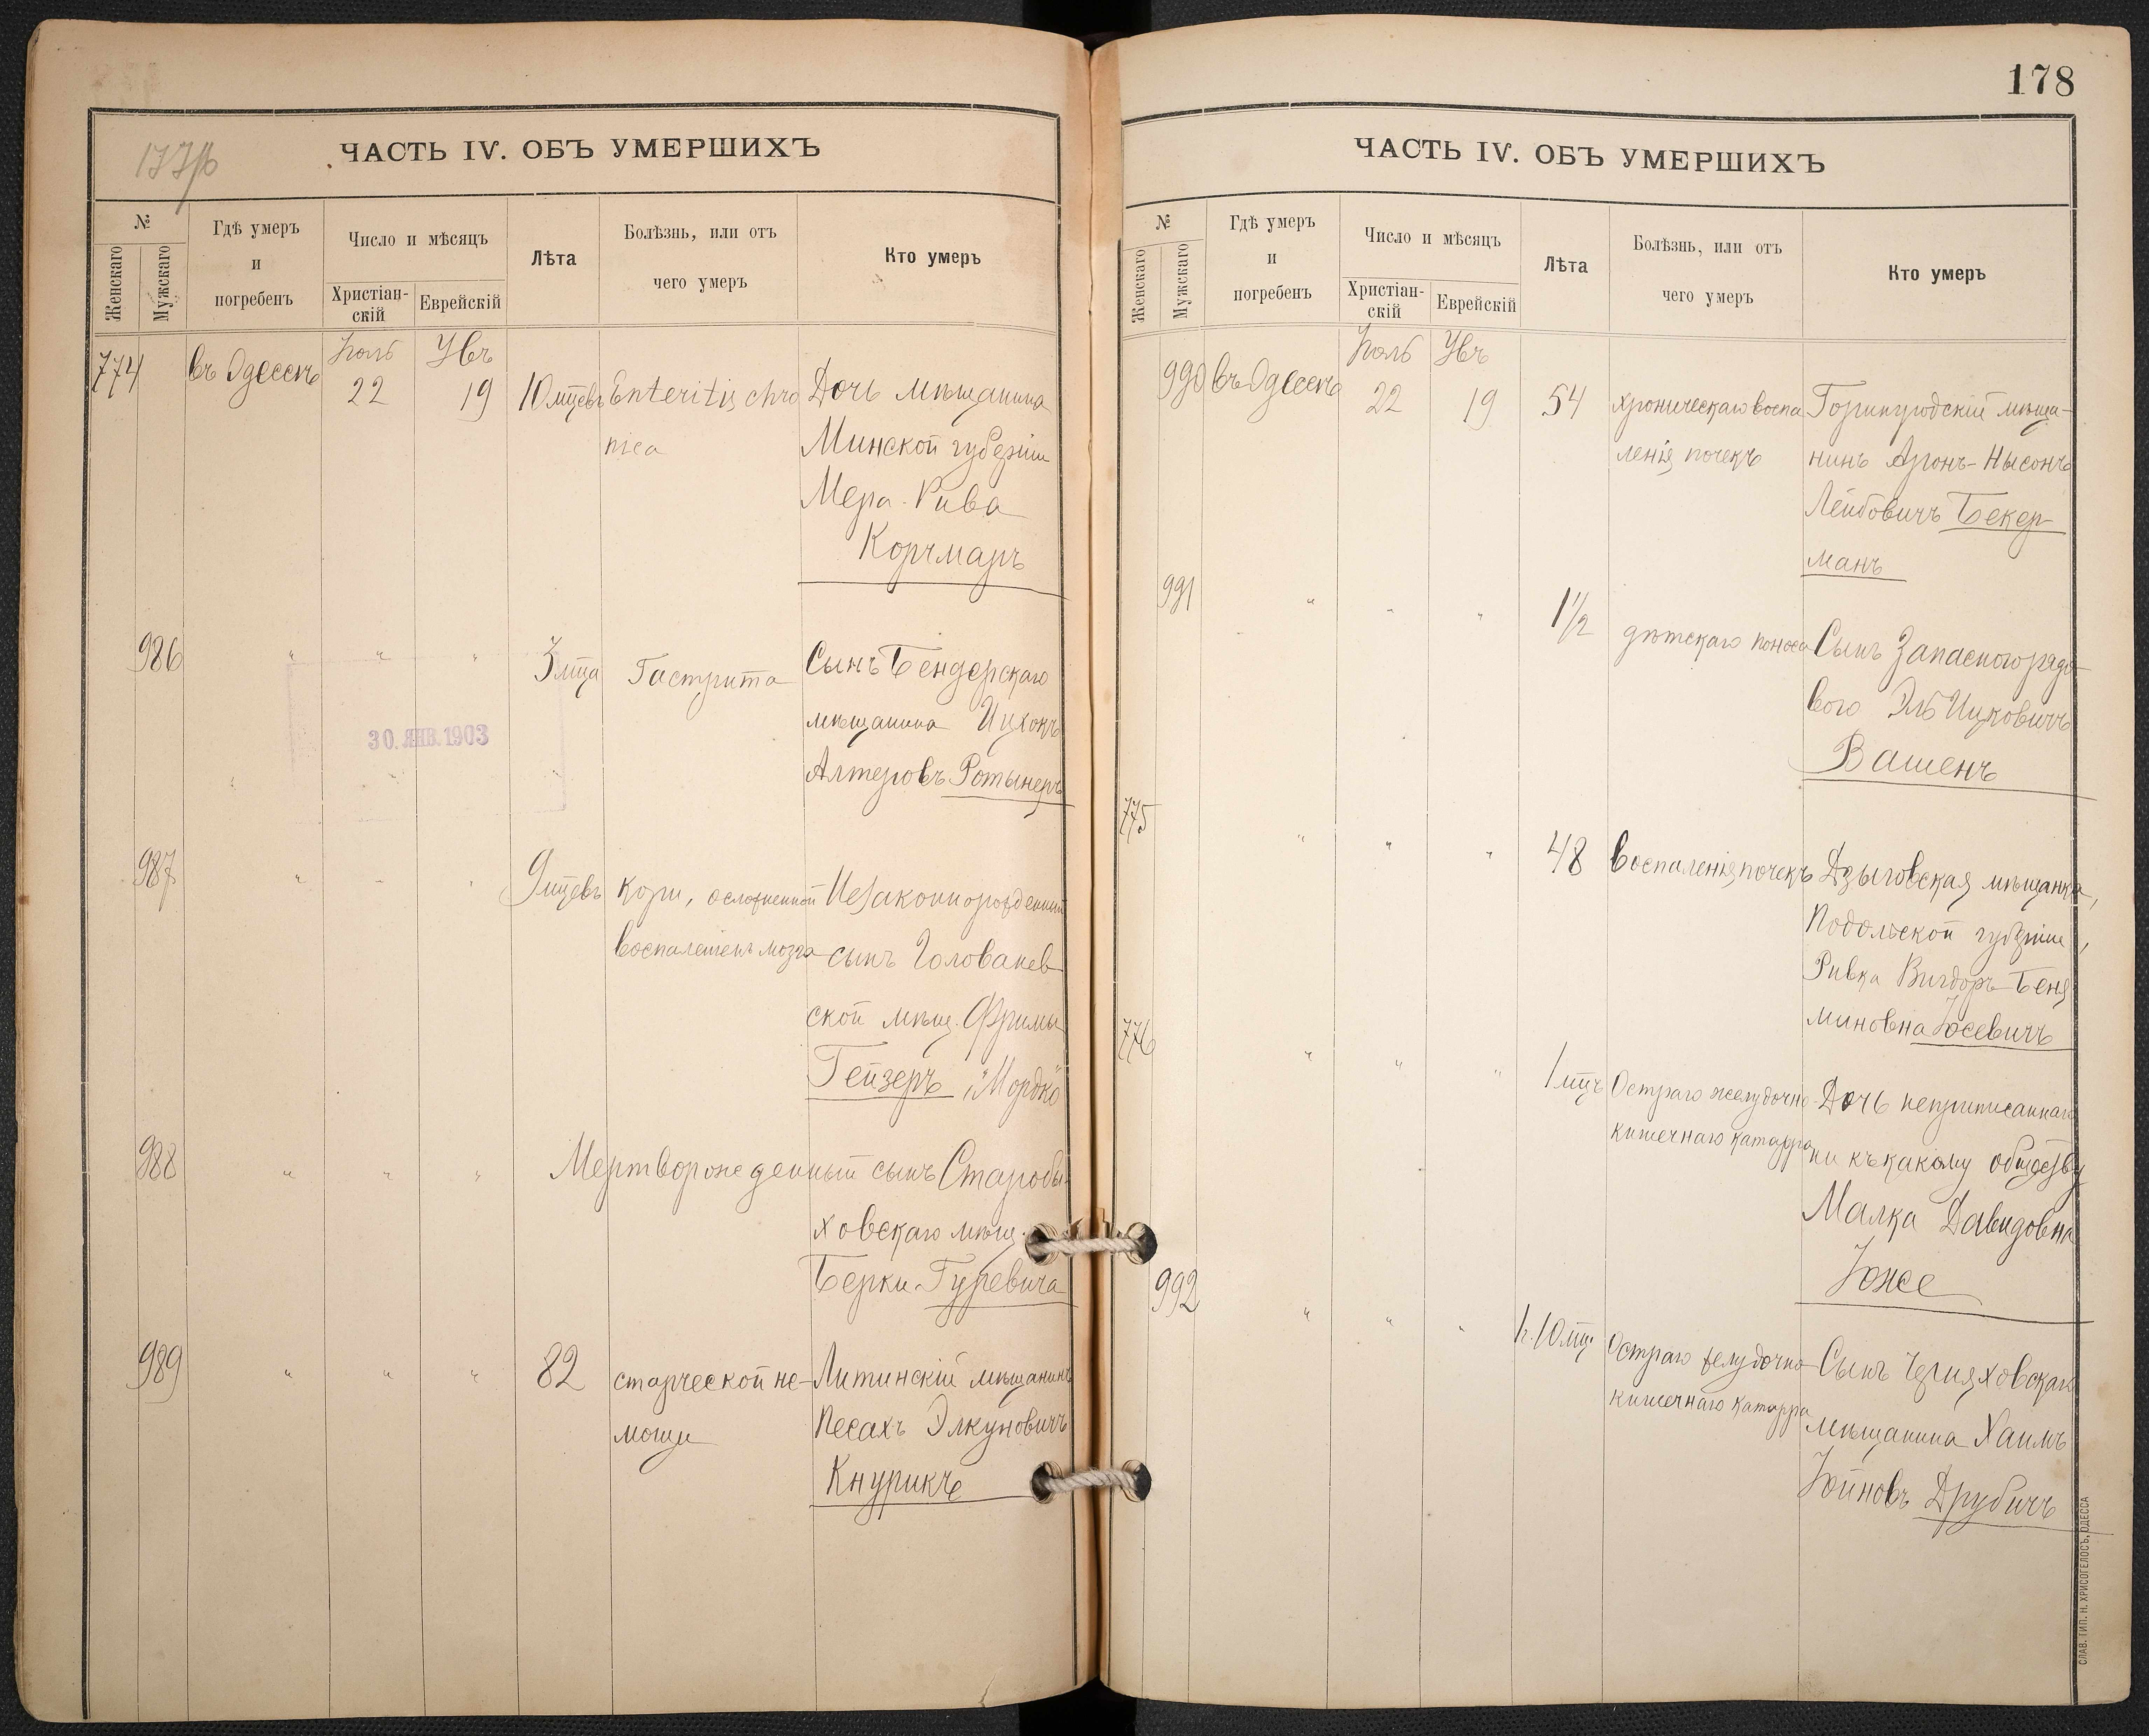 177/б
ЧАСТЬ IV. ОБЪ УМЕРШИХЪ
№
Женскаго
Мужскаго
Гдѣ умеръ
и
погребенъ
Число и мѣсяцъ
Христіан-
скій
Еврейскій
Лѣта
Болѣзнь, или отъ
чего умеръ
Кто умеръ
774
въ Одессѣ
Іюль
22
19
10 мцевъ
Enteritis chro
nica
Дочь мѣщанина
Минской губерніи
Мера-Рива
Корчмаръ
986
" " "
3 мца
Гастрита
Сынъ Бендерскаго
мѣщанина Ицхокъ
Алтеровъ Ротынеръ
30. ЯНВ. 1903
987
" " "
9 мцевъ
Кори, осложненной
воспаленіемъ мозга
Незаконнорожденный
сынъ Голованев-
ской мѣщ. Фримы
Гейзеръ "Мордко"
988
" " "
Мертворожденный сынъ Старобы-
ховскаго мѣщ.
Берки Гуревича
989
" " "
82
старческой не-
мощи
Литинскій мѣщанинъ
Песахъ Элкуновичъ
Кнурикъ
178
ЧАСТЬ IV. ОБЪ УМЕРШИХЪ
№
Женскаго
Мужскаго
Гдѣ умеръ
и
погребенъ
Число и мѣсяцъ
Христіан-
скій
Еврейскій
Лѣта
Болѣзнь, или отъ
чего умеръ
Кто умеръ
990
въ Одессѣ
Іюль
22
19
54
хроническаго воспа
ленія почекъ
мѣща-
нинъ Аронъ-Нысонъ
Лейбовичъ Бекер-
манъ
991
" " "
1 1/2
дѣтскаго поноса
Сынъ Запасного рядо-
вого Эль Ицковичъ
Вашенъ
775
" " "
48
Воспаленія почекъ
Дзыговская мѣщанка,
Подольской губерніи,
Ривка Вигдоръ-Беня
миновна Іосевичъ
776
" " "
1 мцъ
Остраго желудочно-
кишечнаго катарра
Дочь неприписаннаго
ни къ какому обществу
Малка Давидовна
992
" " "
10 мцъ
Остраго желудочно
кишечнаго катарра
Сынъ Черняховскаго
мѣщанина Хаимъ
Іойновъ Друбичъ
СЛАВ. ТИП. Н. ХРИСОГЕЛОСЪ, ОДЕССА